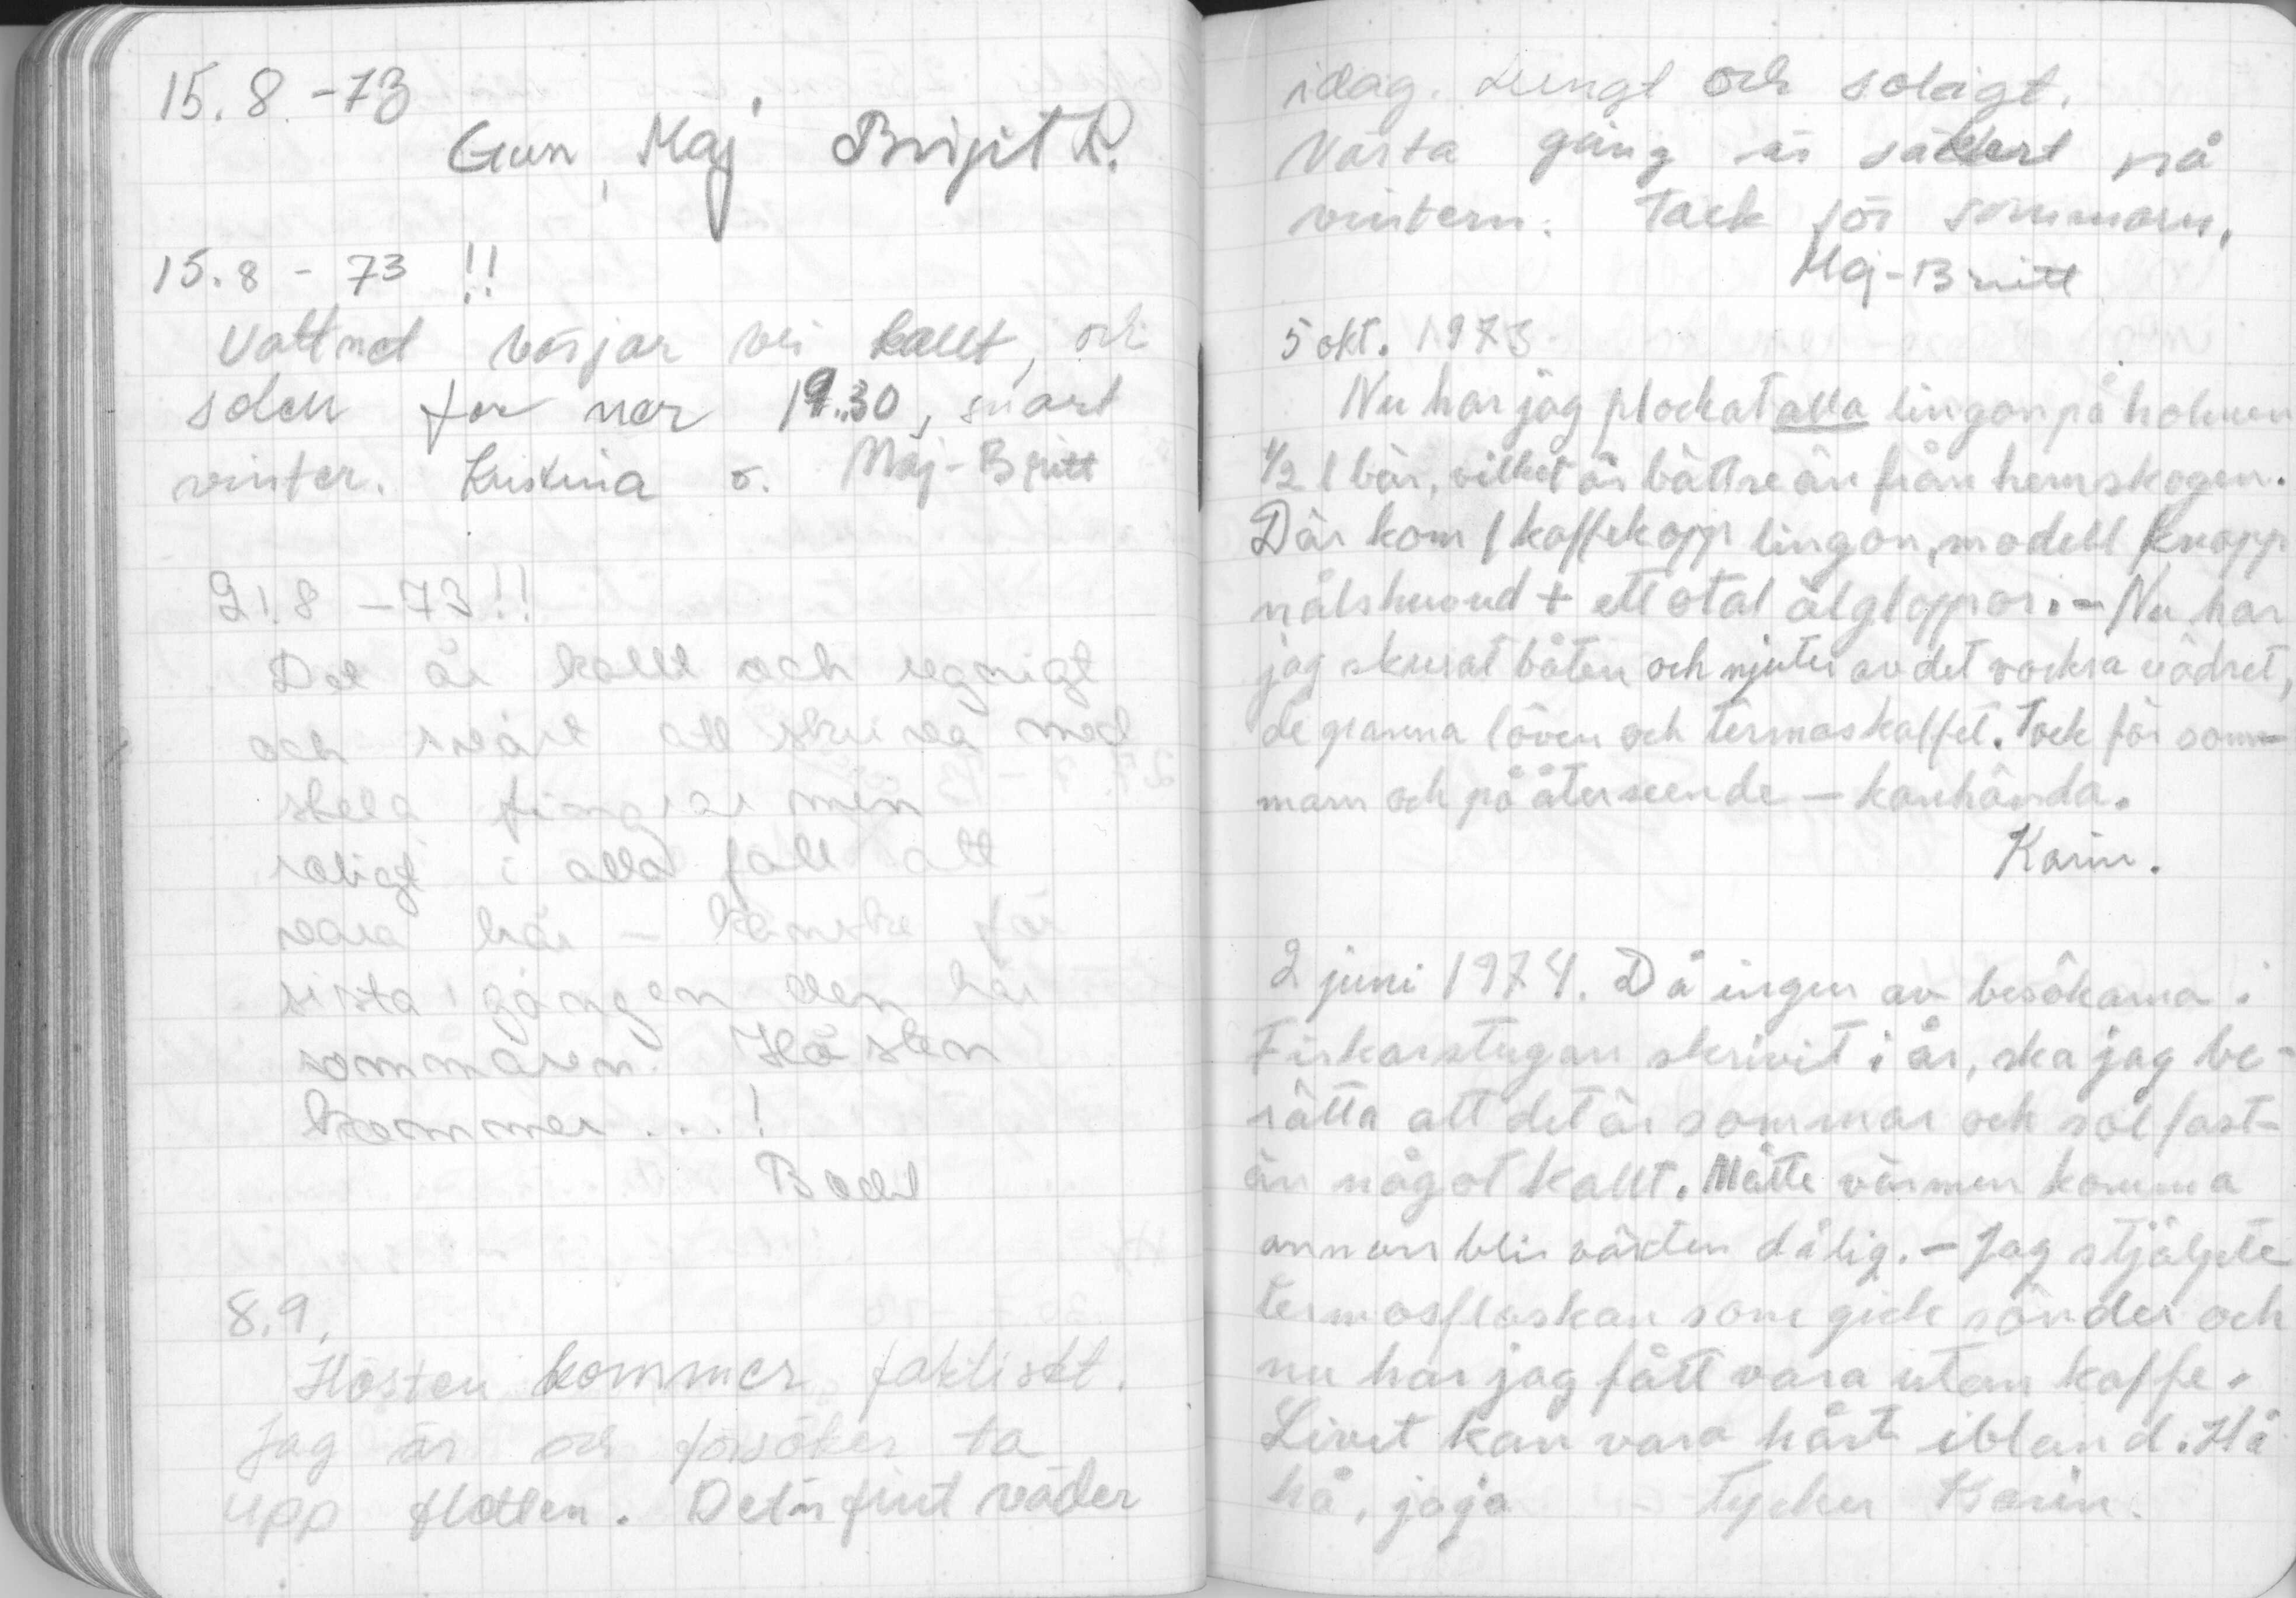 15.8.-73
Gun, Maj Birgit R.
15.8-73 !!
Vattnet börjar bli kallt, och
solen far ner 19.30, snart
vinter. Kristina o. Maj-Britt
21.8-73!!
Det är kallt och regnigt
och svårt att skriva med
stela fingrar men
roligt i alla fall att
vara här – kanske för
sista gången den här
sommaren. Hösten
kommer...!
Bodil
8.9.
Hösten kommer faktiskt.
Jag är och försöker ta
upp flotten. Det är fint väder
idag. Lungt och soligt.
Nästa gång är säkert på
vintern. Tack för sommarn.
Maj-Britt
5 okt. 1973
Nu har jag plockat alla lingon på holmen
1/2 l bär, vilket är bättre än från hemskogen.
Där kom 1 kaffekopp lingon, modell knapp
nålshuvud + ett otal älgloppor. – Nu har
jag skurat båten och njuter av det vackra vädret,
de granna löven och termoskaffet. Tack för som-
marn och på återseende – kanhända.
Karin.
2 juni 1974. Då ingen av besökarna i
Fiskarstugan skrivit i år, ska jag be-
rätta att det är sommar och sol fast-
än något kallt. Måtte värmen komma
annars blir växten dålig. – Jag stjälpte
termosflaskan som gick sönder och
nu har jag fått vara utan kaffe.
Livet kan vara hårt ibland. Hå
hå, jaja – tycker Karin.